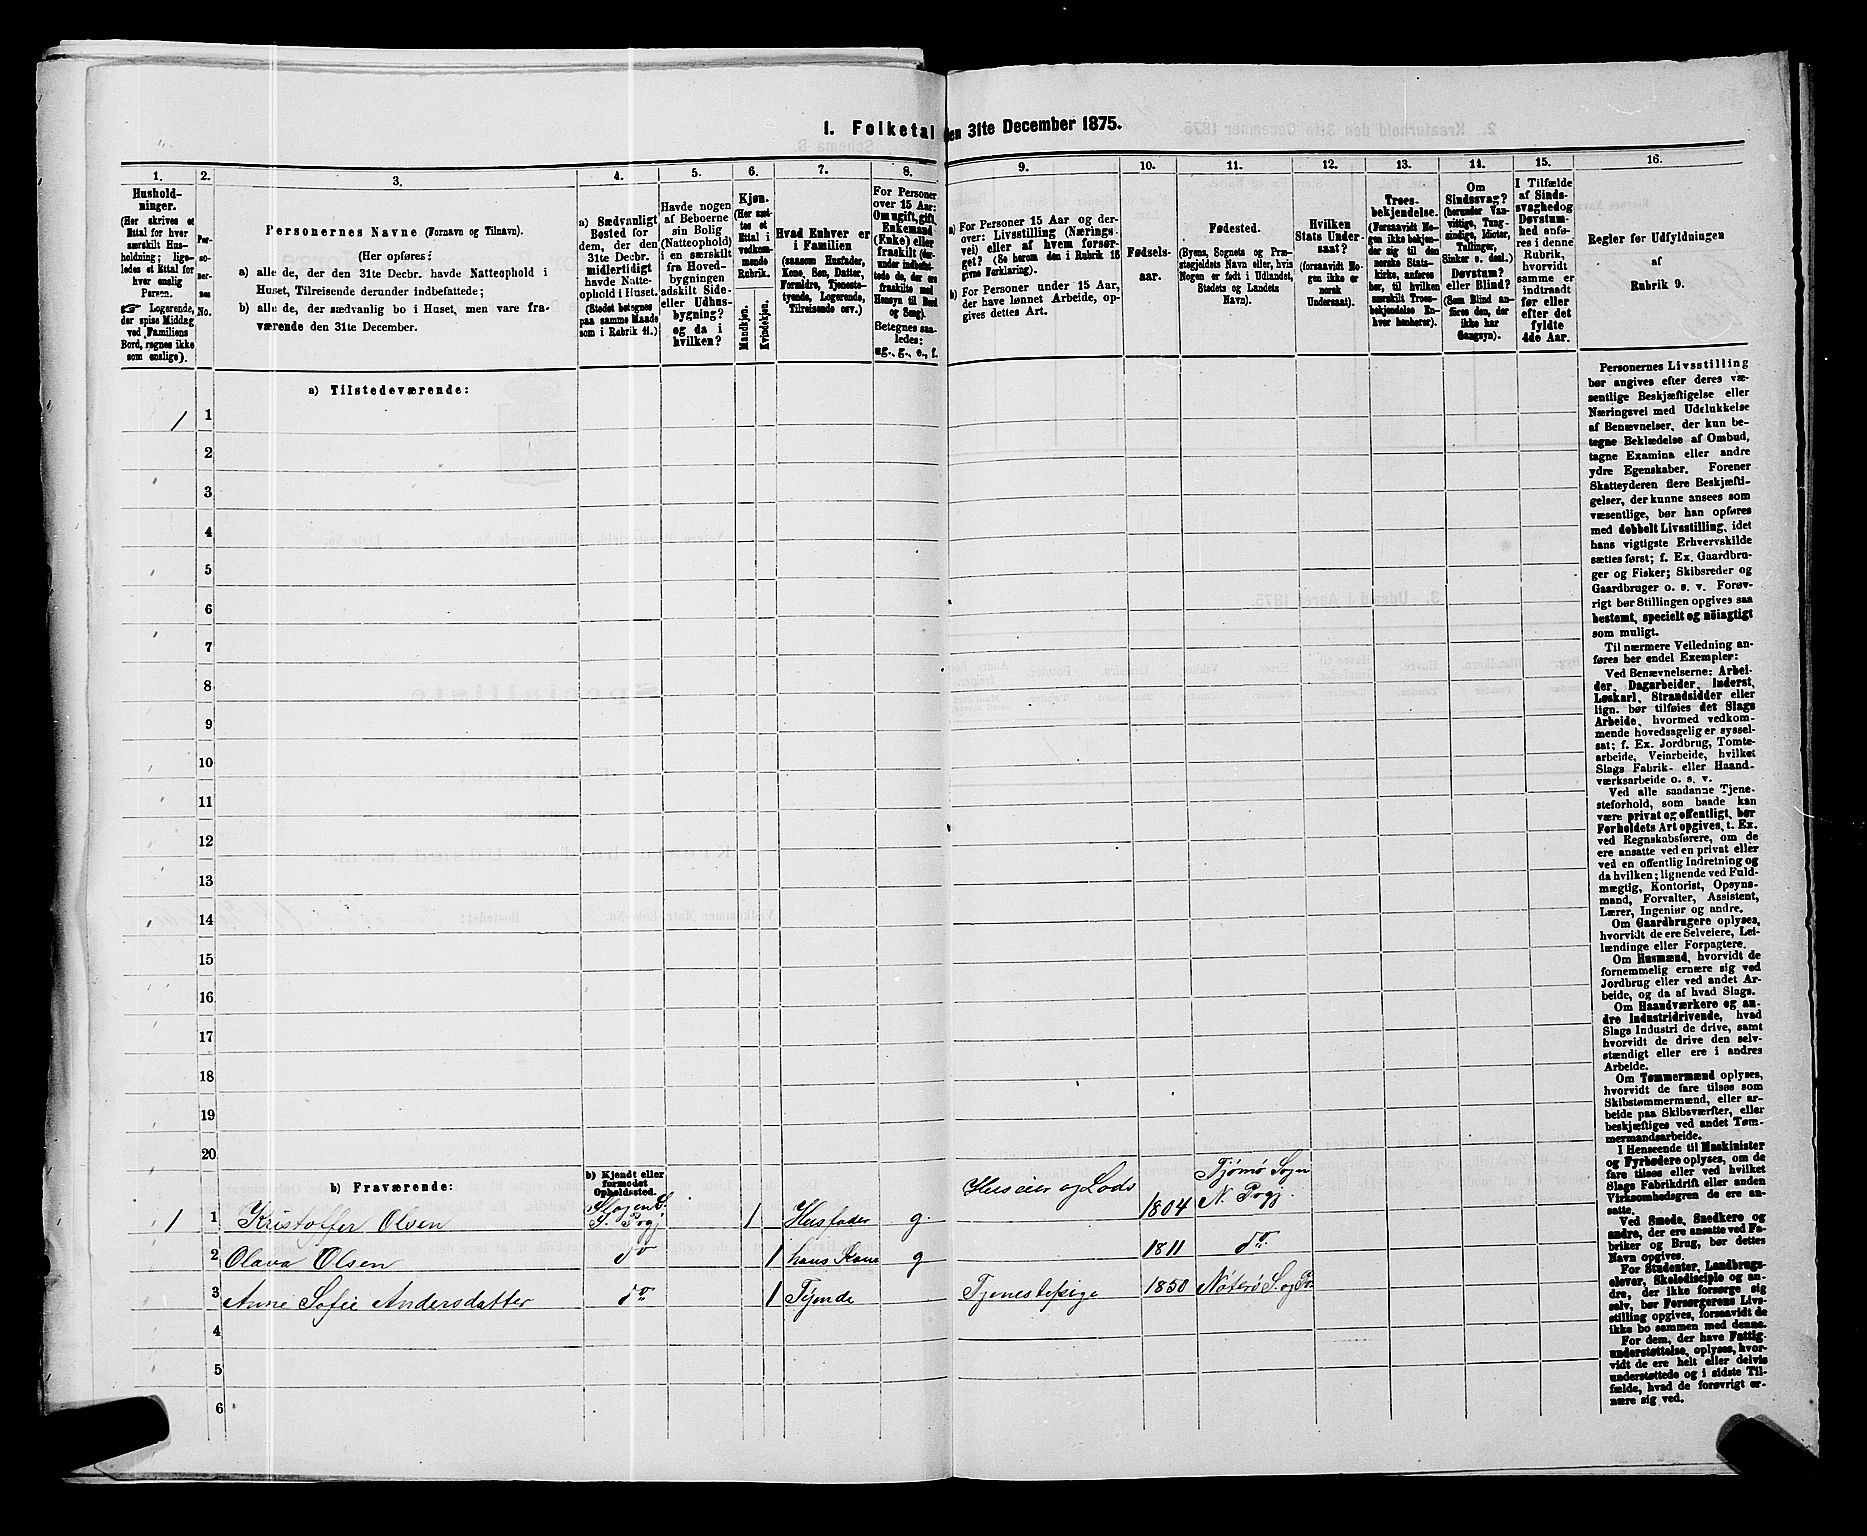 1. Folketal den 31te December 1875.
1.
Hushold-
ninger.
(Her skrives et
Ettal for hver
særskilt Hus-
holdning; lige-
ledes et Ettal for
hver enslig
Person.
☞ Logerende,
der spise Middag
ved Familiens
Bord, regnes ikke
som enslige).
2.
Per-
so-
ner-
nes
No.
3.
Personernes Navne (Fornavn og Tilnavn).
(Her opføres:
a) alle de, der den 31te Decbr. havde Natteophold i
Huset, Tilreisende derunder indbefattede;
b) alle de, der sædvanlig bo i Huset, men vare fra-
værende den 31te December.
4.
a) Sædvanligt
Bosted for
dem, der den
31te Decbr.
midlertidigt
havde Natte-
ophold i Huset.
(Stedet betegnes
paa samme Maade
som i Rubrik 11.)
5.
Havde nogen
af Beboerne
sin Bolig
(Natteophold)
i en særskilt
fra Hoved-
bygningen
adskilt Side-
eller Udhus-
bygning?
og da i
hvilken?
6.
Kjøn.
(Her sæt-
tes et
Ettal i
vedkom-
mende
Rubrik.
Mandkjøn.
Kvindekjøn.
7.
Hvad Enhver er
i Familien
(saasom Husfader,
Kone, Søn, Datter,
Forældre, Tjeneste-
tyende, Logerende,
Tilreisende osv.)
8.
For Personer
over 15 Aar:
Om ugift, gift,
Enkemand
(Enke) eller
fraskilt (der-
under indbefat-
tede de, der ere
fraskilte med
Hensyn til Bord
og Seng).
Betegnes saa-
ledes:
ug., g., e., f.
9.
a) For Personer 15 Aar og der-
over: Livsstilling (Nærings-
vei) eller af hvem forsør-
get? (Se herom den i Rubrik 16
givne Forklaring).
b) For Personer under 15 Aar,
der have lønnet Arbeide, op-
gives dettes Art.
10.
Fødsels-
aar.
11.
Fødested.
(Byens, Sognets og Præ-
stegjeldets Navn eller, hvis
Nogen er født i Udlandet,
Stedets og Landets
Navn).
12.
Hvilken
Stats Under-
saat?
(forsaavidt No-
gen ikke er
norsk
Undersaat).
13.
Troes-
bekjendelse.
(Forsaavidt No-
gen ikke bekjen-
der sig til den
norske Stats-
kirke, anføres
her, til hvilken
særskilt Troes-
bekjendelse En-
hver henhører).
14.
Om
Sindssvag?
(herunder Van-
vittige, Tung-
sindige, Idioter,
Tullinger,
Sinker o. desl.)
Døvstum?
eller Blind?
(Som Blind an-
føres den, der
ikke har
Gangsyn).
15.
I Tilfælde
af Sinds-
svaghed og
Døvstum-
hed anfø-
res i denne
Rubrik,
hvorvidt
samme er
indtraadt
før eller
efter det
fyldte
4de Aar.
16.
Regler for Udfyldningen
af
Rubrik 9.
Personernes Livsstilling
bør angives efter deres væ-
sentlige Beskjæftigelse eller
Næringsvei med Udelukkelse
af Benævnelser, der kun be-
tegne Beklædelse af Ombud,
tagne Examina eller andre
ydre Egenskaber. Forener
Skatteyderen flere Beskjæfti-
gelser, der kunne ansees som
væsentlige, bør han opføres
med dobbelt Livsstilling, idet
hans vigtigste Erhvervskilde
sættes først; f. Ex. Gaardbru-
ger og Fisker; Skibsreder og
Gaardbruger o. s. v. Forøv-
rigt bør Stillingen opgives saa
bestemt, specielt og nöiagtigt
som muligt.
Til nærmere Veiledning an-
føres her endel Exempler:
Ved Benævnelserne: Arbei-
der, Dagarbeider, Inderst,
Løskarl, Strandsidder eller
lign. bør tilføies det Slags
Arbeide, hvormed vedkom-
mende hovedsagelig er syssel-
sat; f. Ex. Jordbrug, Tomte-
arbeide, Veiarbeide, hvilket
Slags Fabrik- eller Haand-
værksarbeide o. s. v.
Ved alle saadanne Tjene-
steforhold, som baade kan
være privat og offentligt, bør
Forholdets Art opgives, t. Ex.
ved Regnskabsførere, om de
ere ansatte ved en privat eller
ved en offentlig Indretning og
da hvilken; lignende ved Fuld-
mægtig, Kontorist, Opsyns-
mand, Forvalter, Assistent,
Lærer, Ingeniør og andre.
Om Gaardbrugere oplyses,
hvorvidt de ere Selveiere, Lei-
lændinge eller Forpagtere.
Om Husmænd, hvorvidt de
fornemmelig ernære sig ved
Jordbrug eller ved andet Ar-
beide, og da af hvad Slags.
Om Haandværkere og an-
dre Industridrivende, hvad
Slags Industri de drive, samt
hvorvidt de drive den selv-
stændigt eller ere i andres
Arbeide.
Om Tømmermænd oplyses,
hvorvidt de fare tilsøs som
Skibstømmermænd, eller ar-
beide paa Skibsværfter, eller
beskjæftiges ved andet Tøm-
mermandsarbeide.
I Henseende til Maskinister
og Fyrbødere oplyses, om de
fare tilsøs eller ved hvilket
Slags Fabrikdrift eller anden
Virksomhedsgren de ere an-
satte.
Ved Smede, Snedkere og
andre, der ere ansatte ved Fa-
briker og Brug, bør dettes
Navn opgives.
For Studenter, Landbrugs-
elever, Skoledisciple og an-
dre, der ikke forsørge sig
selv, bør Forsørgerens Livs-
stilling opgives, forsaavidt de
ikke bo sammen med denne.
For dem, der have Fattig-
understøttelse, oplyses, hvor-
vidt de ere helt eller delvis
understøttede og i sidste Til-
fælde, hvad de forøvrigt er-
nære sig ved.
a) Tilstedeværende:
1 1
2
3
4
5
6
7
8
9
10
11
12
13
14
15
16
17
18
19
20
b) Fraværende:
b) Kjendt eller
formodet
Opholdssted.
1 1 Kristoffer Olsen Slagen S. S. Prgj 1 Husfader g. Huseier og Lods 1804 Tjømø Sogn N. Prgj.
2 Olava Olsen do 1 hans Kone g 1811 do.
3 Anne Sofie Andersdatter do 1 Tjende Tjenestepige 1850 Nöterö S. og Pr
4
5
6